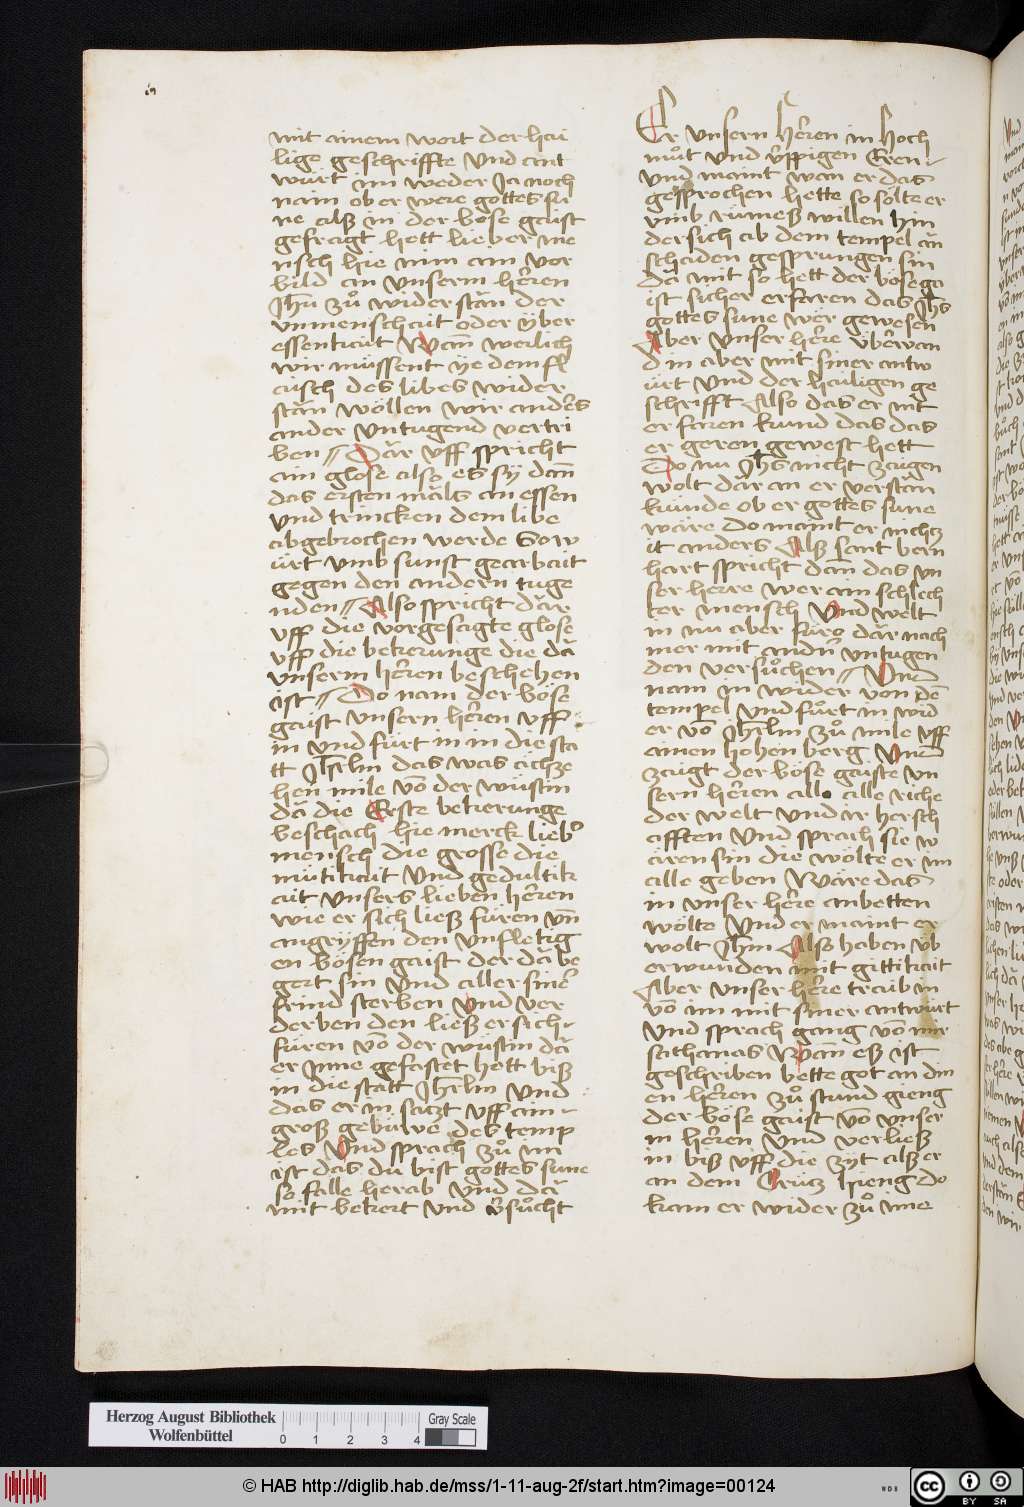 mit ainem wort der hai
lige geschriffte Vnd ant
würt im weder Ja noch
nain ob er were gottes su
ne alß in der böse gaist
gefragt hett lieber me
nsch hie nim am vor
bild an vnserm herren
Jhu zů wider stān der
vnmenschait oder yber
essentkait Wam̄ weilich
wir müssent ye dem fl
aisch des libes wider
stān wöllen wir anders
ander vntugend vertri
ben // Dar vff spricht
ain glose also es sy dan̄
das ersten māls an essen
vnd trincken dem libe
abgebrochen werde So w
ürt vmb sunst gearbait
gegen den andern tuge
nden // Also spricht dār
vff die vorgesagte glose
vff die bekerunge die dā
vnserm herren beschehen
ist // Do nam der böse
gaist vnsern herren vff
in vnd fürt in in die sta
tt Jhrlm das was achze
hen mile vō der wüstin
dā die Erste bekerunge
beschach hie merck lieber
mensch die grosse die
mütikait Vnd gedultik
ait vnsers lieben herren
wie er sich ließ füren vn̄
angryffen den vnfletig
en bösen gaist der dā be
gert sin Vnd aller siner
frind sterben Vnd ver
derben den ließ er sich
füren vō der wüstin dā
er Inne gefastet hett biß
in die statt Jhrlm vnd
das er in saczt vff ain
groß gebüwe des temp
les Vnd sprach zů im
ist das du bist gottes sune
so falle herab Vnd dā
mit bekort vnd v̄sůcht
Er vnsern herren in hoch
můt vnd üppigen Eren
Vnd maint wan er das
gesprochen hette so solte er
vmb rümeß willen hin
der sich ab dem tempel ān
schaden gesprungen sin
dā mit so hett der böse ga
ist sicher erfaren das Jhs
gottes sune wer gewesen
Aber vnser herre überwan
d in aber mit siner antw
ürt Vnd der hailigen ge
schrifft Also das er nit
erfaren kund das das
er geren gewest hett
Do nu Jhs nicht zaugen
wolt dār an er verstān
kunde ob er gottes sune
wäre do maint er nichz
it anders Alß sant bern
hart spricht dan̄ das vn
ser herre wer ain schlech
ter mensch Vnd welt
in nu aber fürō dār nach
mer mit andn̄ vntugen
den versůchen // Vnd
nam in wider von dē
tempel vnd fůrt in wid
er vō Jhrlm zů mile vff
ainen hohen berg Vnd
zaigt der böse gaiste vn
sern herren alle alle riche
der welt vnd ir hersch
afften Vnd sprach sie w
ären sin die wölte er im
alle geben Wäre das
in vnser herre anbetten
wölte Vnd er maint er
wolt Jhm Also haben üb
erwunden mit gittikait
Aber vnser herre traib in
vō im mit siner antwürt
Vnd sprach gang vō mir
sathanas Wan̄ eß ist
geschriben bette got an din
en herren zů stund gieng
der böse gaist vō vnser
m herren Vnd verließ
in biß vff die zyt alß er
an dem Crücz hieng do
kam er wider zů ime
Herzog August Bibliothek
Wolfenbüttel
0 1 2 3 4
Gray Scale
© HAB http://diglib.hab.de/mss/1-11-aug-2f/start.htm?image=00124
WDB
cc BY SA